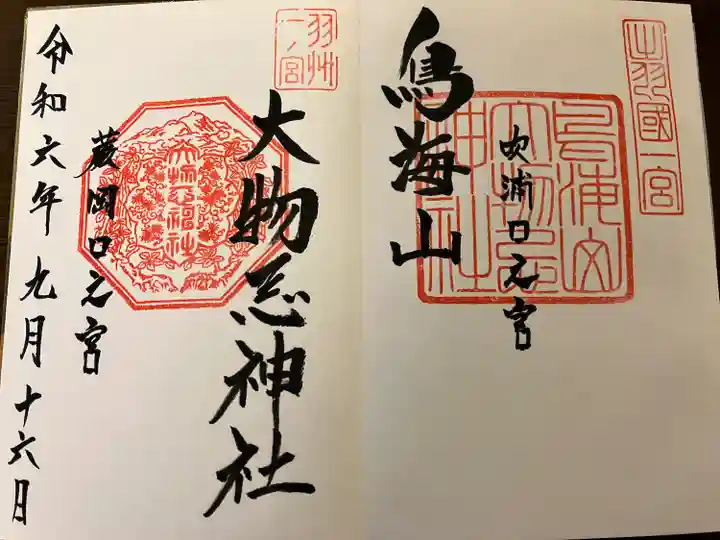 出羽國一宮
鳥海山
吹浦口之宮
羽州
一ノ宮
大物忌神社
大物忌神社
蕨岡口之宮
令和六年九月十六日